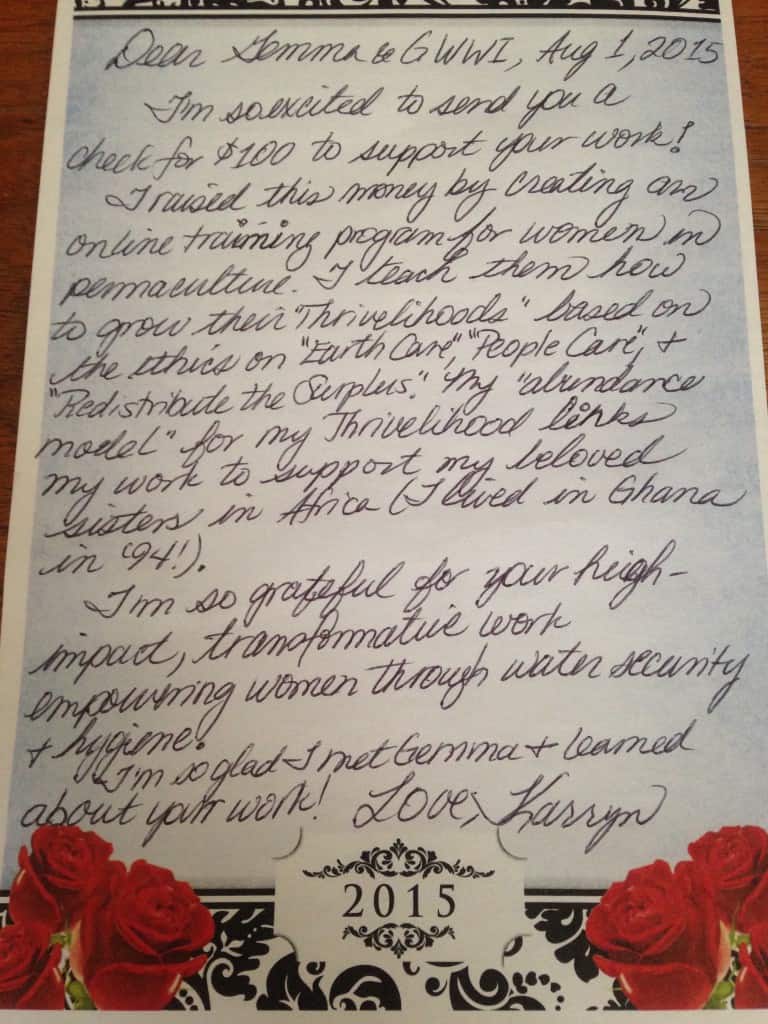 Dear Gemma & GWWI, Aug 1, 2015
I'm so excited to send you a
check for $100 to support your work!
I raised this money by creating an
online training program for women in
permaculture. I teach them how
to grow their "Thrivelihoods" based on
the ethics on "Earth Care", "People Care", +
"Redistribute the Surplus". My "abundance
model" for my Thrivelihood links
my work to support my beloved
sisters in Africa (I lived in Ghana
in '94!).
I'm so grateful for your high-
impact, transformative work
empowering women through water security
+ hygiene.
I'm so glad I met Gemma + learned
about your work! Love, Karryn
2015